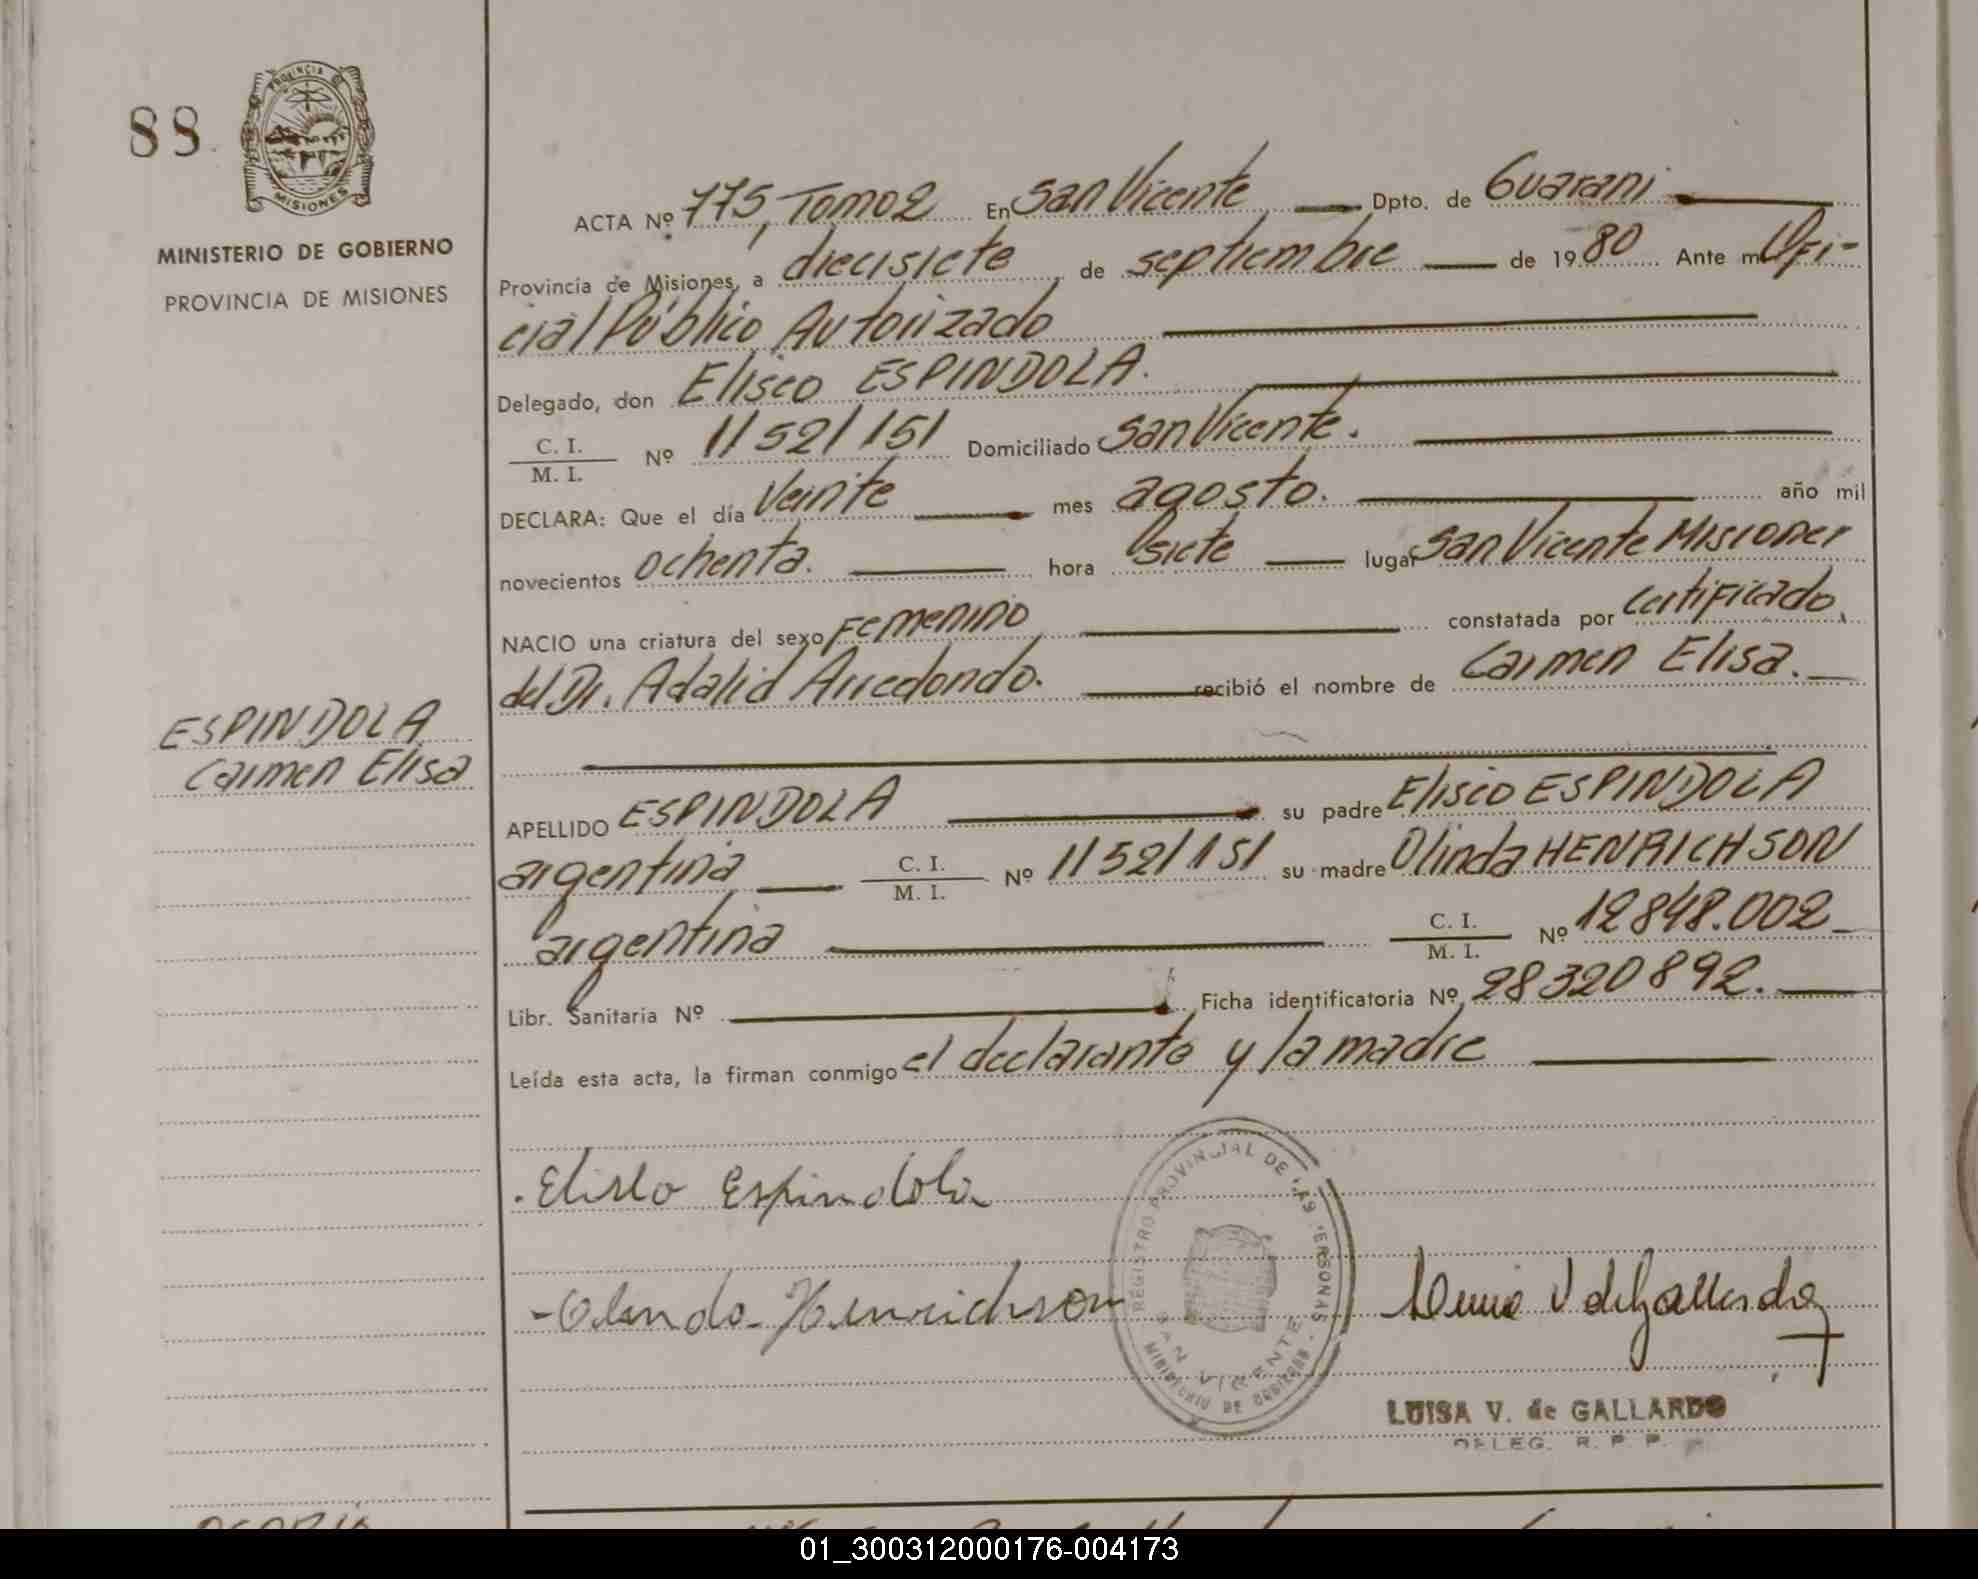 88
PROVINCIA DE
MISIONES
MINISTERIO DE GOBIERNO
PROVINCIA DE MISIONES
ACTA Nº 775, Tomo 2 En San Vicente Dpto. de Guaraní
Provincia de Misiones, a diecisiete de septiembre de 1980 Ante mí Ofi-
cial Público Autorizado
Delegado, don Eliseo ESPINDOLA.
C. I. / M. I. Nº 11521151 Domiciliado San Vicente.
DECLARA: Que el día Veinte mes agosto. año mil
novecientos ochenta. hora siete lugar San Vicente Misiones
NACIO una criatura del sexo Femenino constatada por certificado
del Dr. Adalid Arredondo. recibió el nombre de Carmen Elisa.
ESPINDOLA
Carmen Elisa
APELLIDO ESPINDOLA su padre Eliseo ESPINDOLA
argentina C. I. / M. I. Nº 11521151 su madre Olinda HENRICHSON
argentina C. I. / M. I. Nº 12848.002
Libr. Sanitaria Nº Ficha identificatoria Nº 28320892.
Leída esta acta, la firman conmigo el declarante y la madre
Eliseo Espindola
Olinda Henrichson
REGISTRO PROVINCIAL DE LAS PERSONAS
SAN VICENTE
MINISTERIO DE GOBIERNO
LUISA V. de GALLARDO
DELEG. R. P. P.
01_300312000176-004173